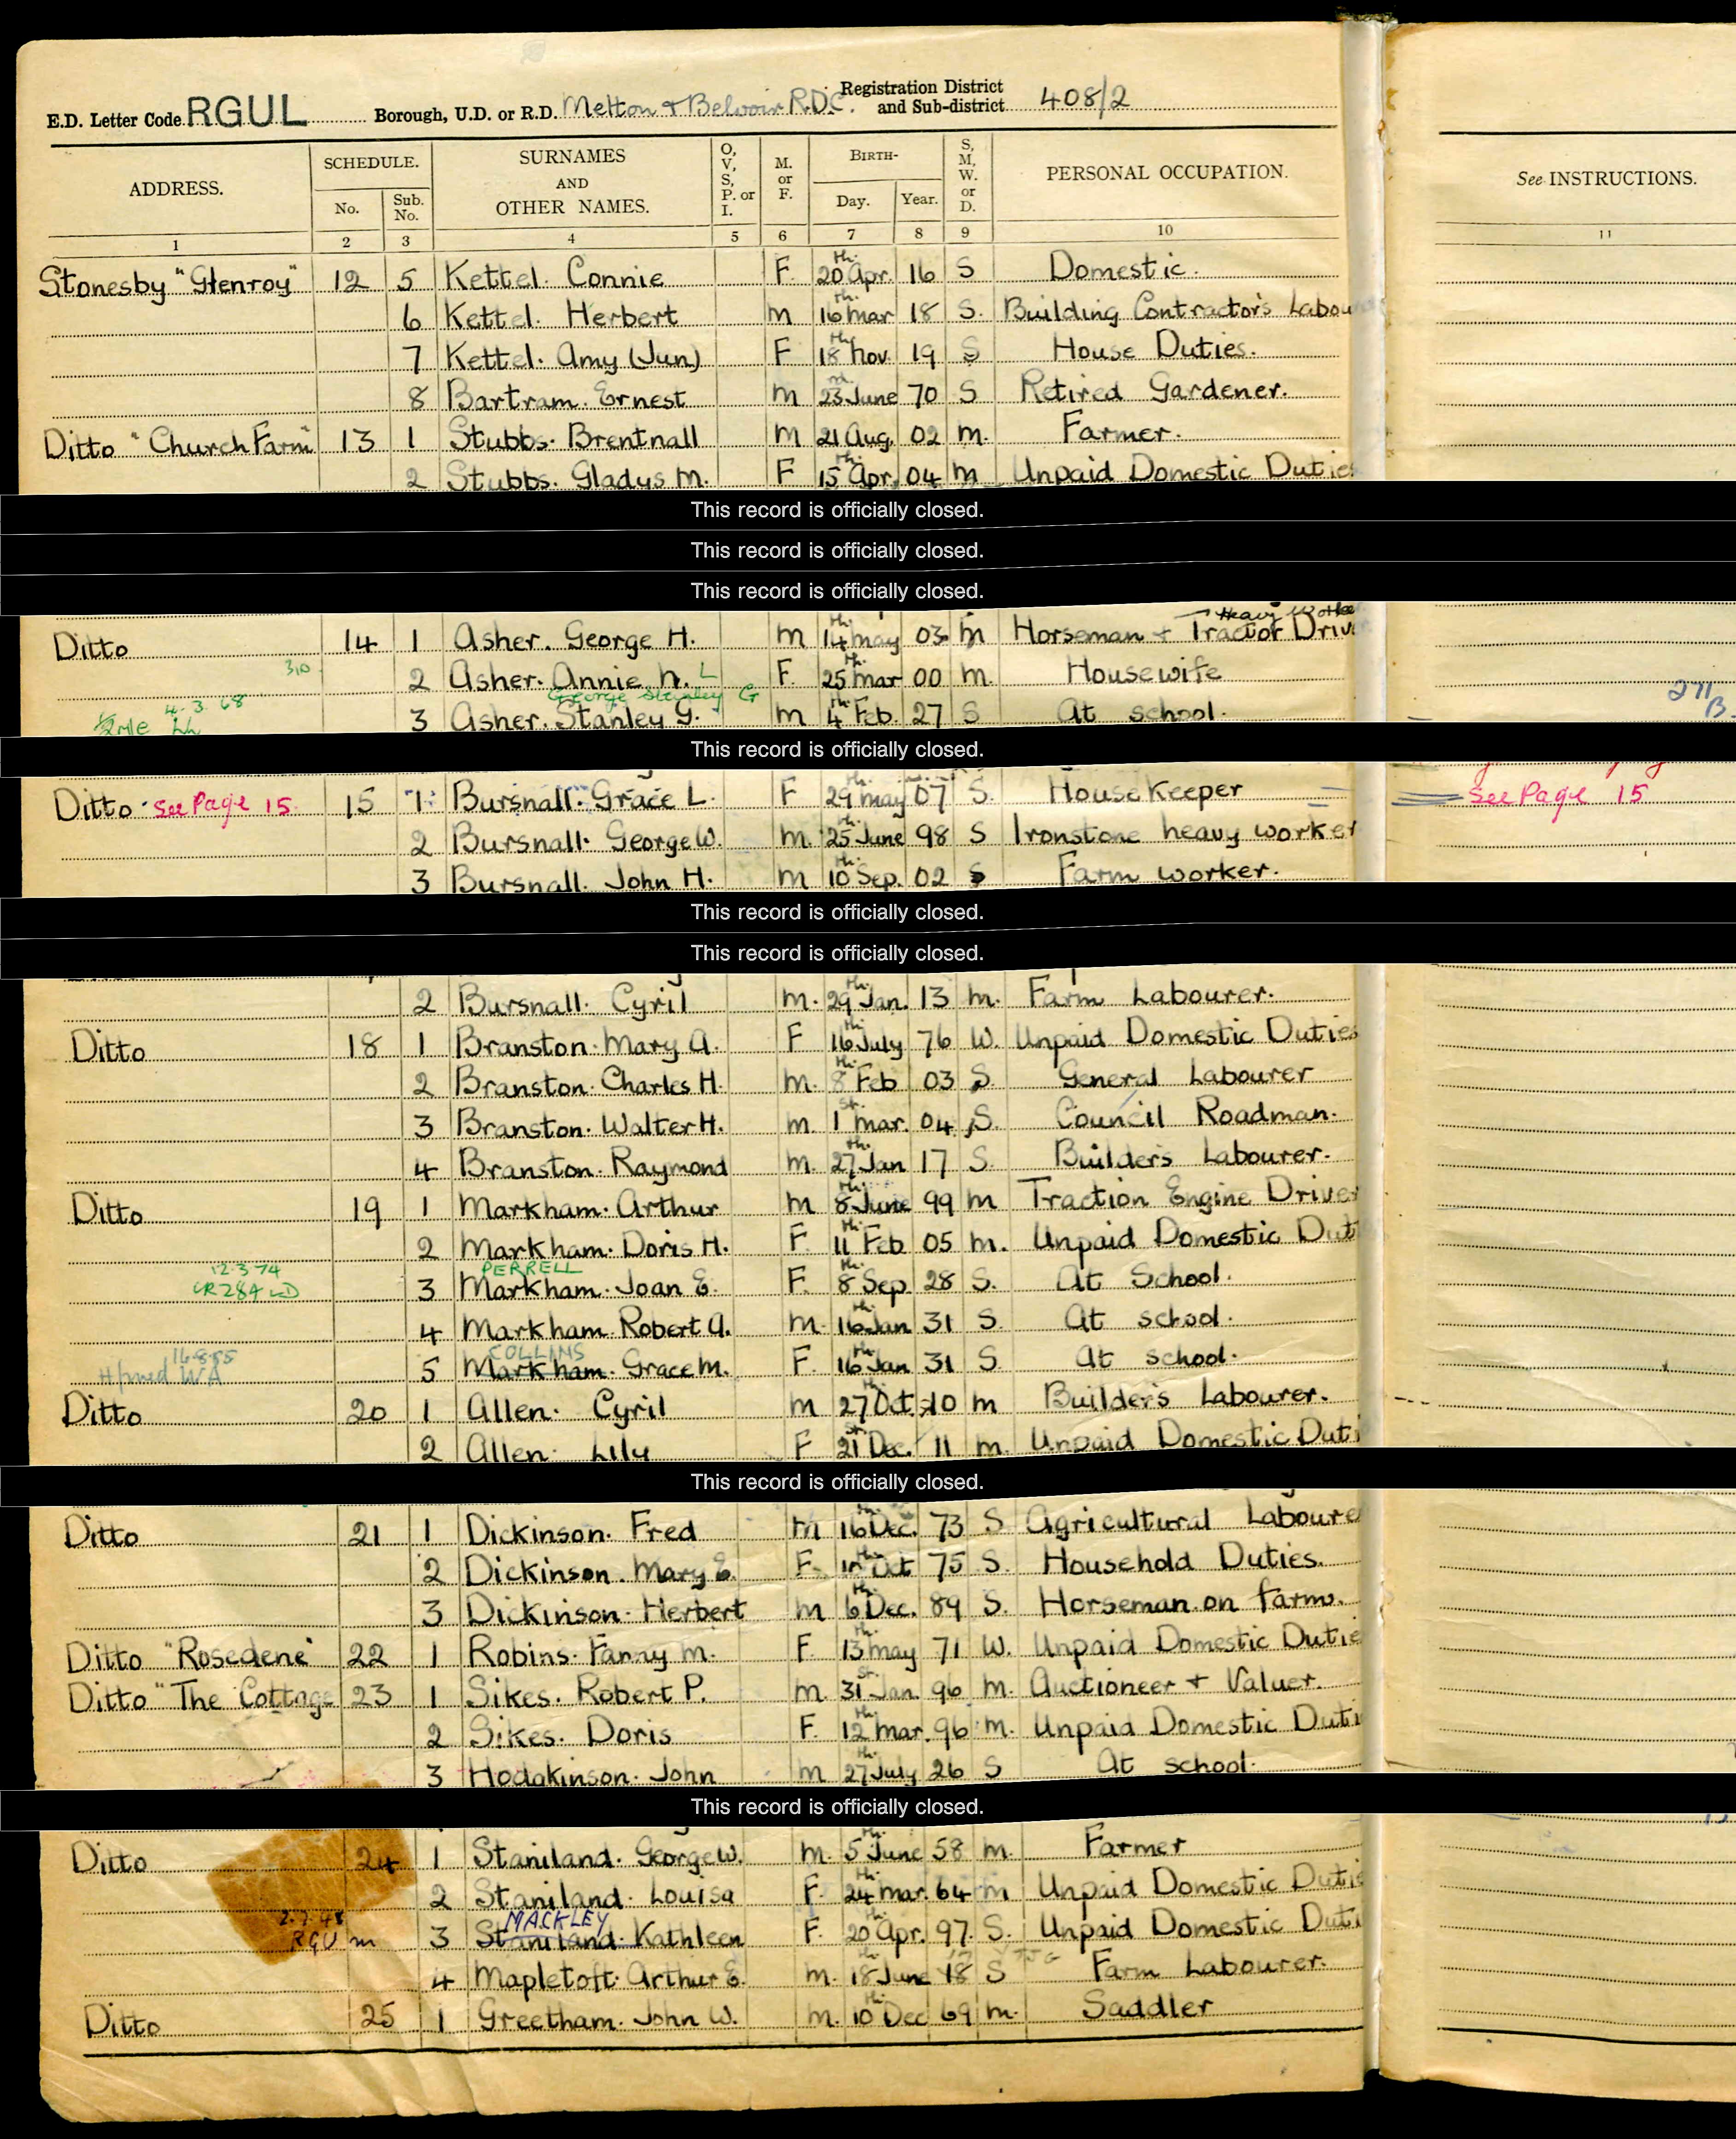 E.D. Letter Code RGUL Borough, U.D. or R.D. Melton & Belvoir R.D.C. Registration District and Sub-district 408/2
ADDRESS. SCHEDULE. No. Sub. No. SURNAMES AND OTHER NAMES. O, V, S, P. or I. M. or F. BIRTH- Day. Year. S, M, W. or D. PERSONAL OCCUPATION. See INSTRUCTIONS.
1 2 3 4 5 6 7 8 9 10 11
Stonesby "Glenroy" 12 5 Kettel. Connie F. 20th Apr. 16 S Domestic.
6 Kettel. Herbert m 16th mar 18 S. Building Contractor's Labou
7 Kettel. Amy (Jun) F 18th Nov. 19 S House Duties.
8 Bartram. Ernest m 23rd June 70 S Retired Gardener.
Ditto "Church Farm" 13 1 Stubbs. Brentnall m 21 Aug. 02 m. Farmer.
2 Stubbs. Gladys M. F 15th Apr. 04 m Unpaid Domestic Duties
This record is officially closed.
This record is officially closed.
This record is officially closed.
Heavy Worker
Ditto 14 1 Asher. George H. m 14th may 03 m Horseman + Tractor Driv
310
2 Asher. Annie N. L F. 25th mar 00 m. Housewife
4.3.68 George Stanley G 271/B
3 Asher. Stanley G. m 4th Feb. 27 S At school.
This record is officially closed.
Ditto. See Page 15 15 1 Bursnall. Grace L. F 29th may 07 S. House Keeper See Page 15
2 Bursnall. George W. m. 25th June 98 S Ironstone heavy worker
3 Bursnall. John H. m 10th Sep. 02 S Farm worker.
This record is officially closed.
This record is officially closed.
2 Bursnall. Cyril m. 29th Jan. 13 m. Farm Labourer.
Ditto 18 1 Branston. Mary A. F 16th July 76 W. Unpaid Domestic Duties
2 Branston. Charles H. m. 8th Feb 03 S. General Labourer
3 Branston. Walter H. m. 1st mar. 04 S. Council Roadman.
4 Branston. Raymond m. 27th Jan 17 S. Builder's Labourer.
Ditto 19 1 Markham. Arthur m 8th June 99 m Traction Engine Driver
2 Markham. Doris H. F. 11th Feb 05 m. Unpaid Domestic Dut
12.3.74 PERRELL
CR284 3 Markham. Joan E. F. 8th Sep. 28 S. At School.
4 Markham. Robert A. m. 16th Jan 31 S. At school.
16.8.55 COLLINS
5 Markham. Grace M. F. 16th Jan 31 S At school.
Ditto 20 1 Allen. Cyril m 27th Oct. 10 m Builder's Labourer.
2 Allen. Lily F 21st Dec. 11 m. Unpaid Domestic Duti
This record is officially closed.
Ditto 21 1 Dickinson. Fred m 16th Dec. 73 S Agricultural Laboure
2 Dickinson. Mary E. F. 10th Oct 75 S. Household Duties.
3 Dickinson. Herbert m 6th Dec. 89 S. Horseman on farm.
Ditto "Rosedene" 22 1 Robins. Fanny m. F. 13th may 71 W. Unpaid Domestic Dutie
Ditto "The Cottage 23 1 Sikes. Robert P. m. 31st Jan. 96 m. Auctioneer + Valuer.
2 Sikes. Doris F. 12th mar. 96 m. Unpaid Domestic Duti
3 Hodgkinson. John m 27th July 26 S At school.
This record is officially closed.
Ditto 24 1 Staniland. George W. m. 5th June 58 m. Farmer
2 Staniland. Louisa F. 24th mar. 64 m Unpaid Domestic Dutie
2.7.48 MACKLEY
RGU m 3 Staniland. Kathleen F. 20th Apr. 97. S. Unpaid Domestic Duti
4 Mapletoft. Arthur E. m. 18th June 18 S Farm Labourer.
Ditto 25 1 Greetham. John W. m. 10th Dec 69 m. Saddler